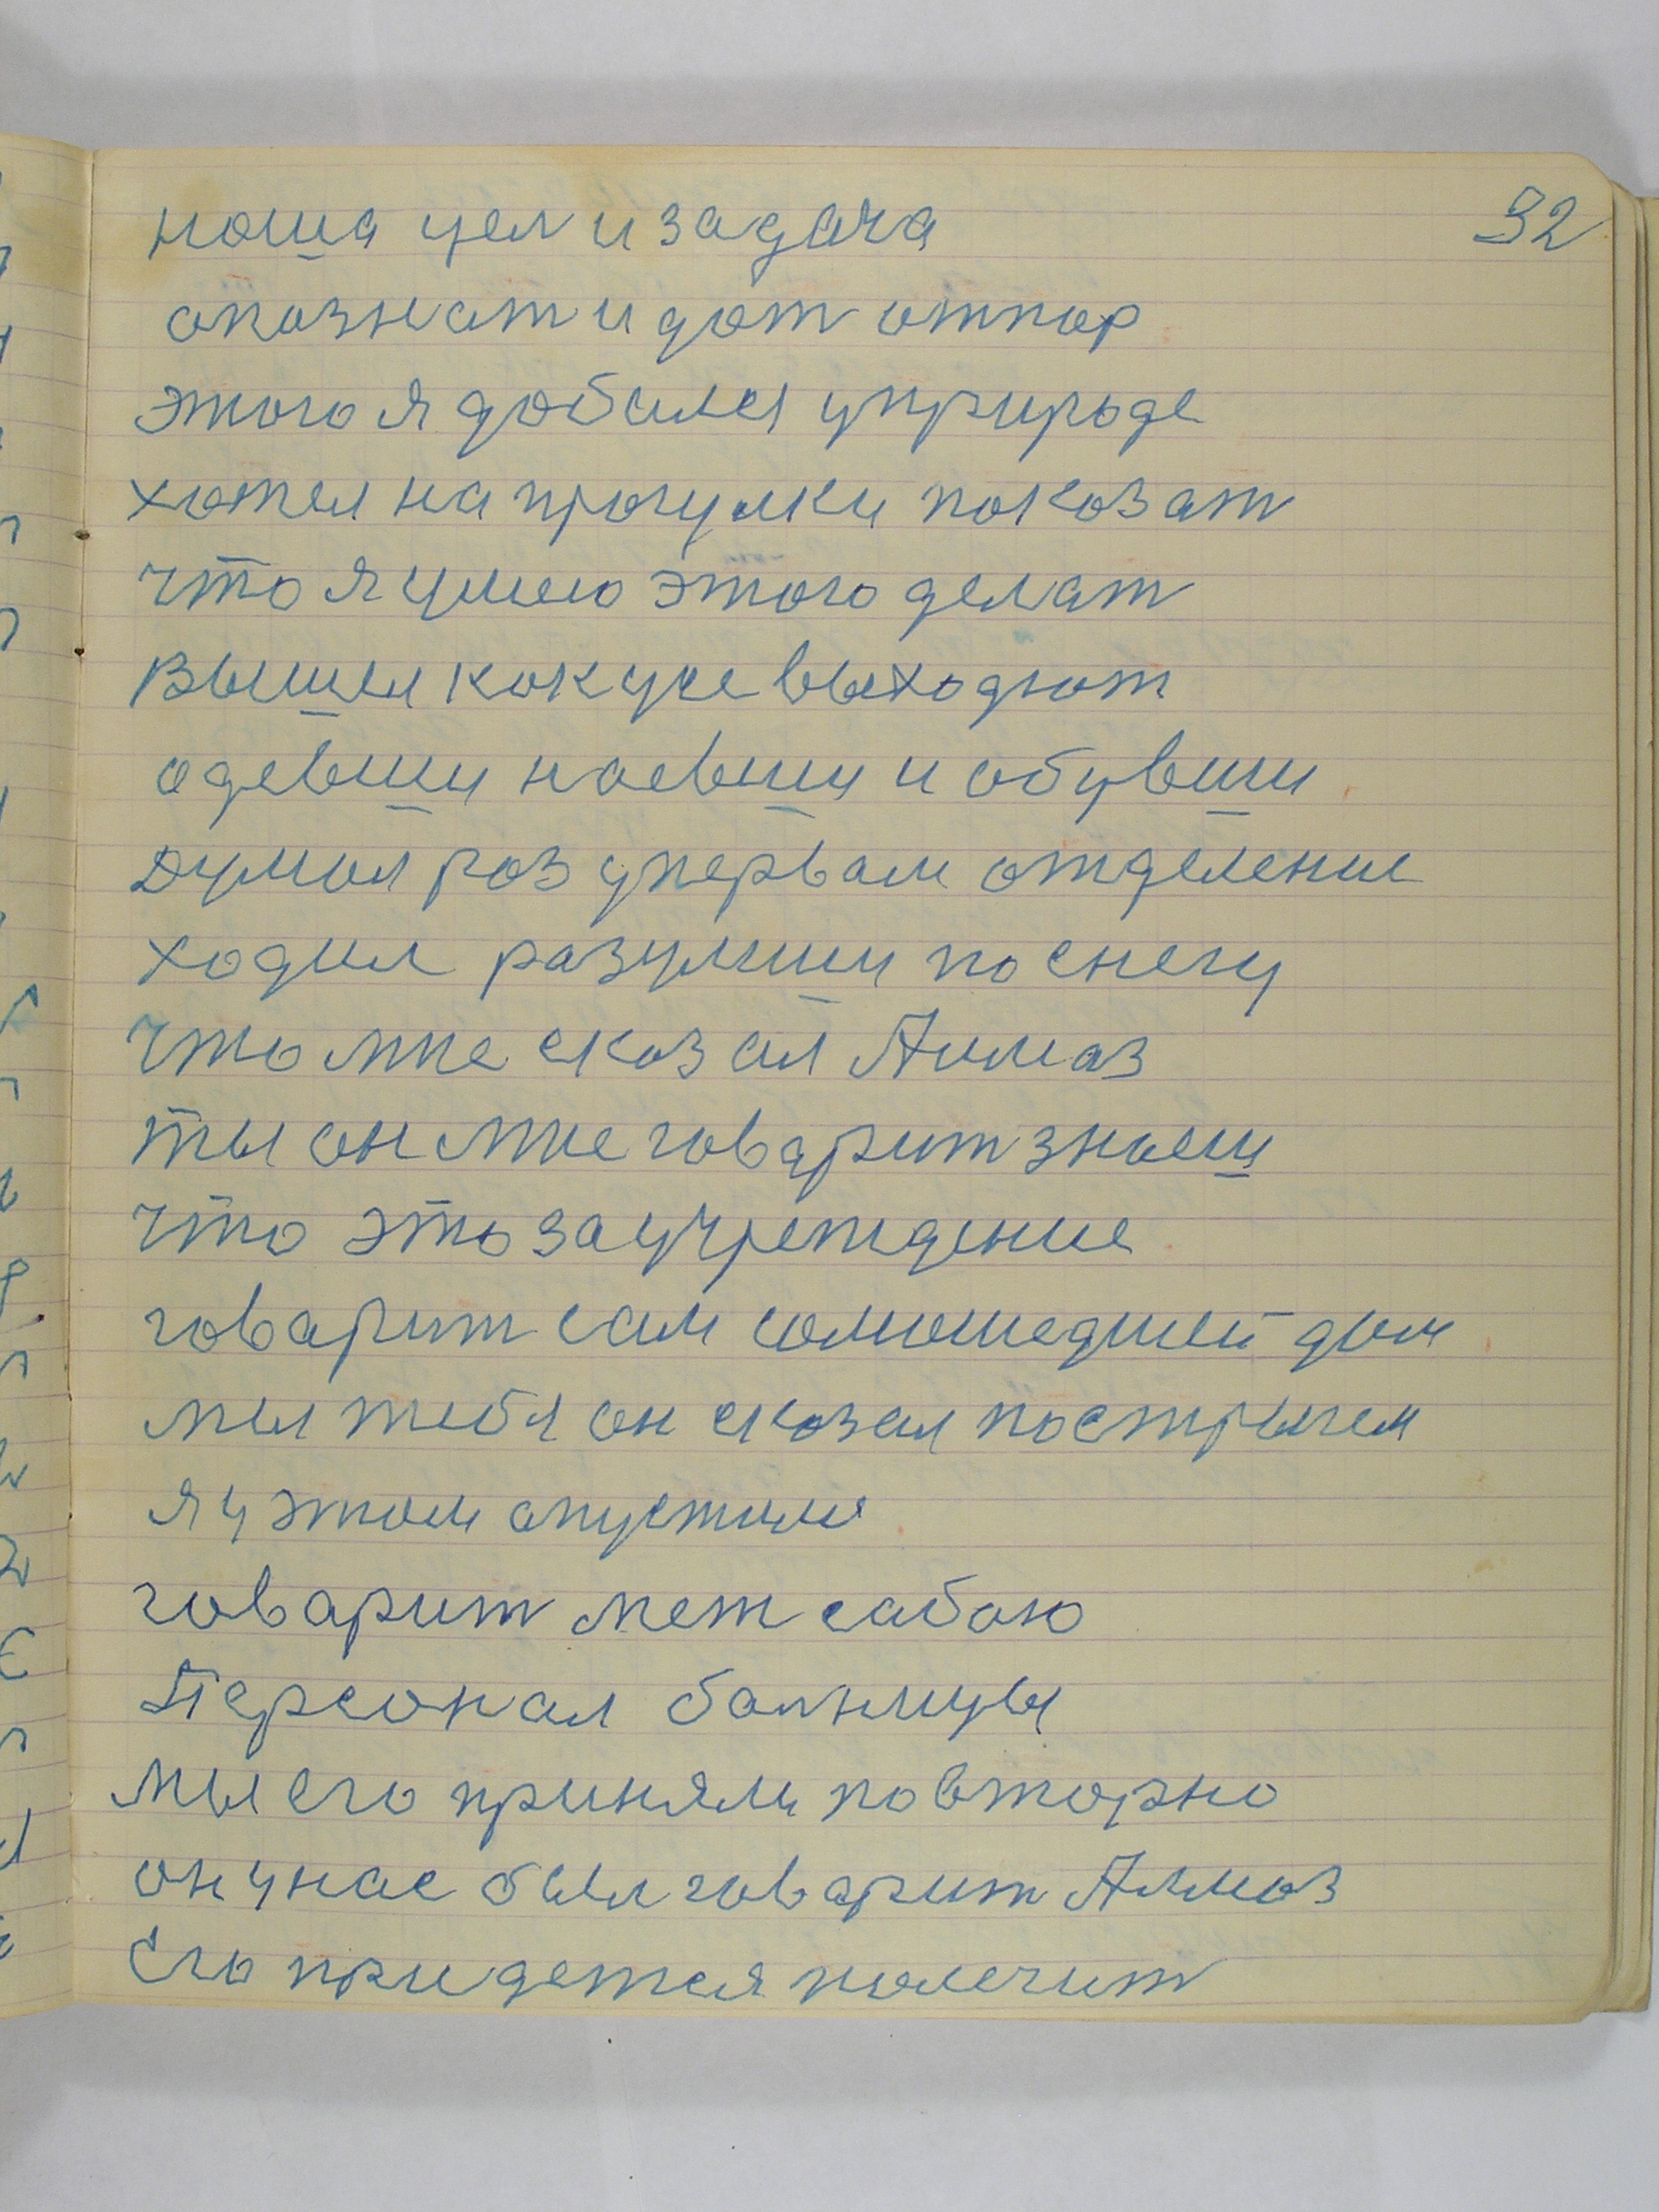 32
наша цел и задача
опазнат и дат отпор
этого я добился уприроде
хотел на прогулки показат
что я умею этого делат
Вышел как усе выходют
одевши наевши и обувши
Думал раз упервам отделение
ходил разумши поснегу
что мне сказал Алмаз
ты он мне говарит знаеш
что это за учреждение
говарит сам сомошедшей дом
мы тебя он сказал пострыгем
я у этом опустил
говарит меж сабою
Персонал балницы
мы его приняли повторно
он у нас был говарит Алмаз
Его придется полечит